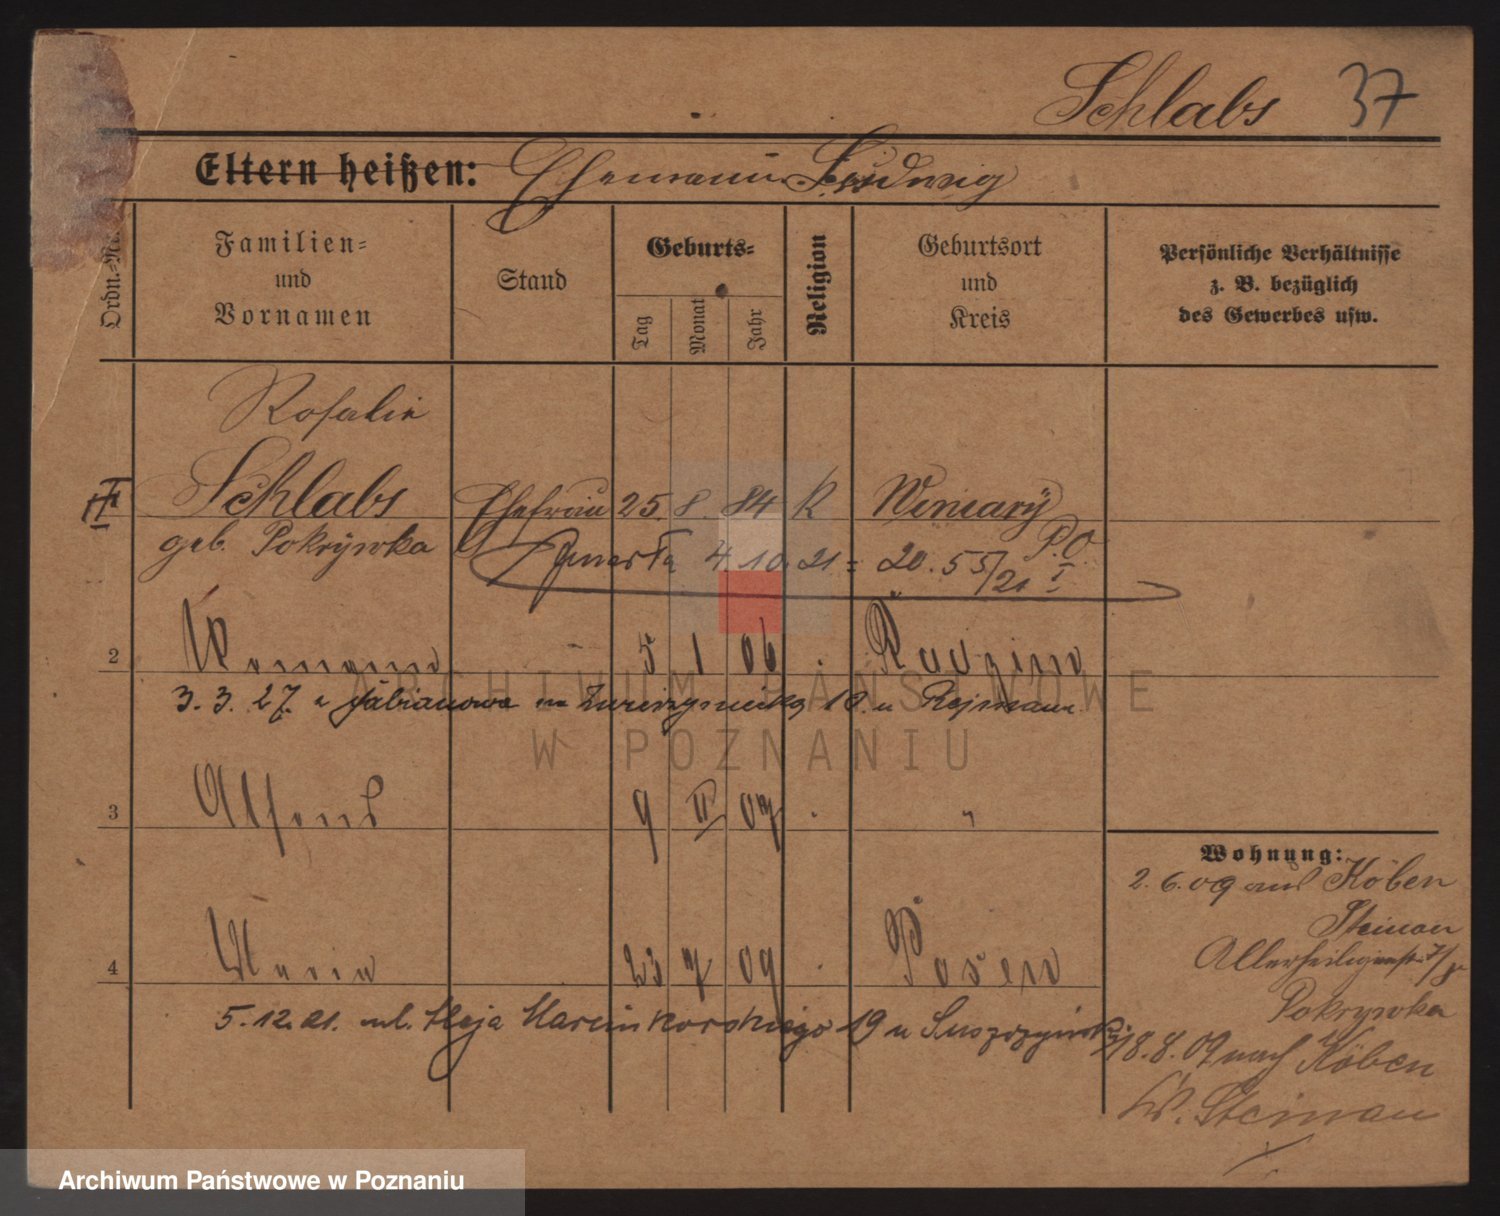 Schlabs 37
Eltern heißen: Ehemann Ludwig
Ordn.-Nr.
Familien-
und
Vornamen
Stand
Geburts-
Tag
Monat
Jahr
Religion
Geburtsort
und
Kreis
Persönliche Verhältnisse
z. B. bezüglich
des Gewerbes usw.
Rosalie
Schlabs Ehefrau 25. 8. 84 K Winiary
geb. Pokrywka
Zmarła 4.10.21 = 20.55/21 P.O. I
2 Romana 5 1 06 Radzim
3. 3. 27 z Fabianowa 10 u Rejmann
3 Alfons 9 II 07 "
4 Maria 23 7 09 Posen
5.12.21. ul. Aleja Marcinkowskiego 19 u
Wohnung:
2.6.09 aus Köben
Steinau
Allerheiligenstr.
Pokrywka
18.8.09 nach Köben
Kr. Steinau
ARCHIWUM PAŃSTWOWE
W POZNANIU
Archiwum Państwowe w Poznaniu